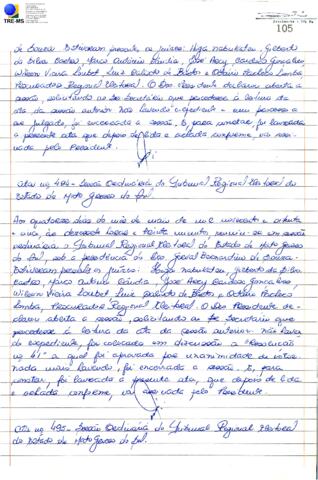 TRE-MS
105
de Souza. Estiveram presentes os juízes: Higa Nabukatsu, Gilberto
da Silva Castro, Marco Antônio Cândia, José Aecy Cardoso Gonçalves,
Wilson Vieira Loubet, Luiz Calixto de Bastos e Octávio Pacheco Lomba,
Procurador Regional Eleitoral. O Des. Presidente declarou aberta a
sessão, solicitando ao Sr. Secretário que procedesse à leitura da
ata da sessão anterior. Não havendo expediente e nem processo a
ser julgado, foi encerrada a sessão. E, para constar, foi lavrada
a presente ata, que depois de lida e achada conforme, vai assi-
nada pelo Presidente.
Ata nº 494 - Sessão Ordinária do Tribunal Regional Eleitoral do
Estado de Mato Grosso do Sul.
Aos quatorze dias do mês de maio de mil novecentos e oitenta
e um, às dezessete horas e trinta minutos, reuniu-se em sessão
ordinária o Tribunal Regional Eleitoral do Estado de Mato Grosso
do Sul, sob a presidência do Des. Jesus Bernardino de Souza.
Estiveram presentes os juízes: Higa Nabukatsu, Gilberto da Silva
Castro, Marco Antônio Cândia, José Aecy Cardoso Gonçalves
Wilson Vieira Loubet, Luiz Calixto de Bastos e Octávio Pacheco
Lomba, Procurador Regional Eleitoral. O Des. Presidente de-
clarou aberta a sessão, solicitando ao Sr. Secretário que
procedesse à leitura da ata da sessão anterior. Não havendo
expediente, foi colocada em discussão a "Resolução
nº 41" a qual foi aprovada por unanimidade de votos.
Nada mais havendo, foi encerrada a sessão. E, para
constar, foi lavrada a presente ata, que depois de lida
e achada conforme, vai assinada pelo Presidente.
Ata nº 495 - Sessão Ordinária do Tribunal Regional Eleitoral
do Estado de Mato Grosso do Sul.